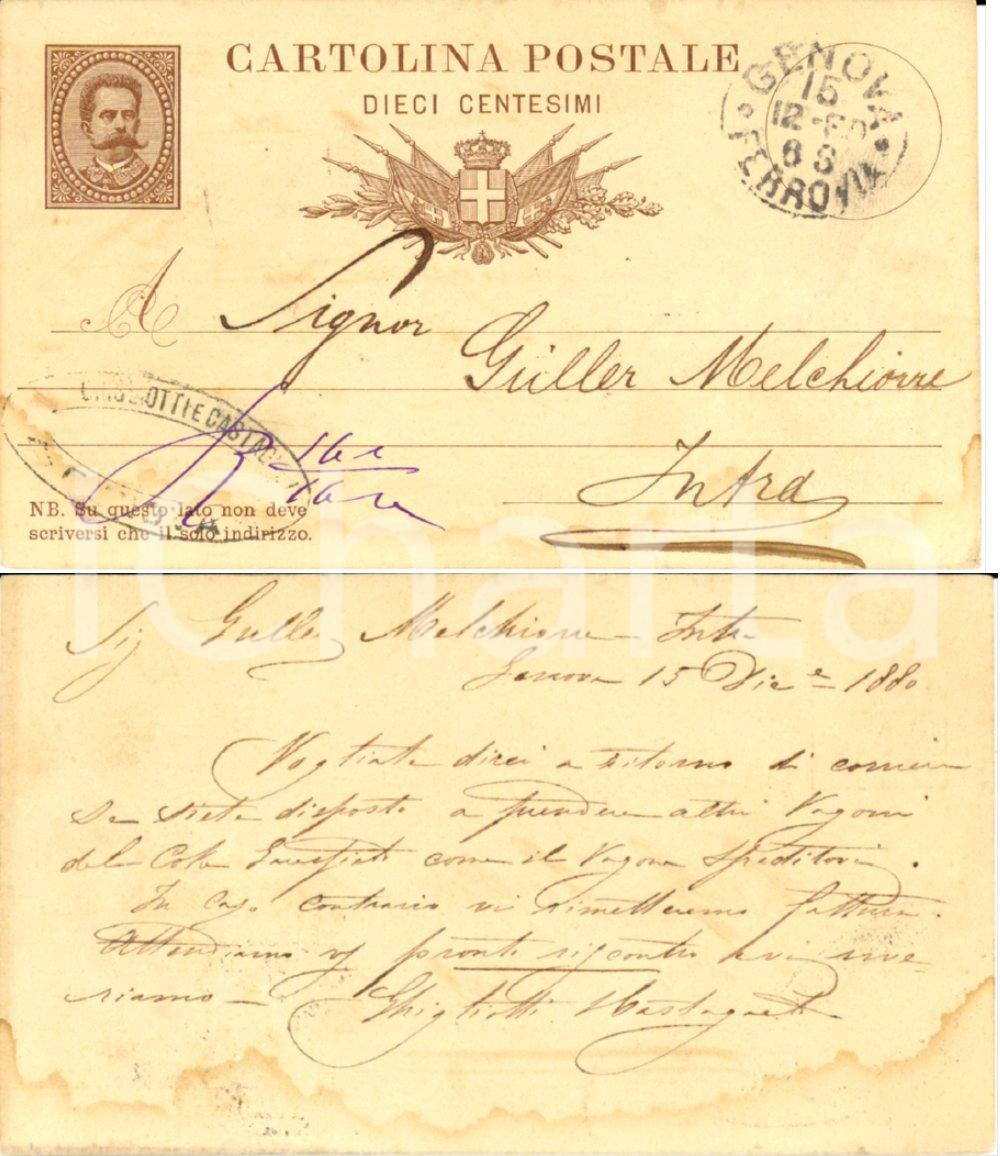 CARTOLINA POSTALE
DIECI CENTESIMI
GENOVA
15
12-80
6 S
FERROVIA
A Signor
Güller Melchiorre
Intra
E CASTAG
16
NB. Su questo lato non deve
scriversi che il solo indirizzo.
iCharta
Sig Guller Melchiorre Intra
Genova 15 Dice 1880
Vogliate dirci a ritorno di corriere
Se siete disposto a prendere altri Vagoni
del Coke come il Vagone Speditovi.
In caso contrario vi rimetteremo fattura.
Attendiamo pronto riscontro e vi rive-
riamo
Ghigliotti